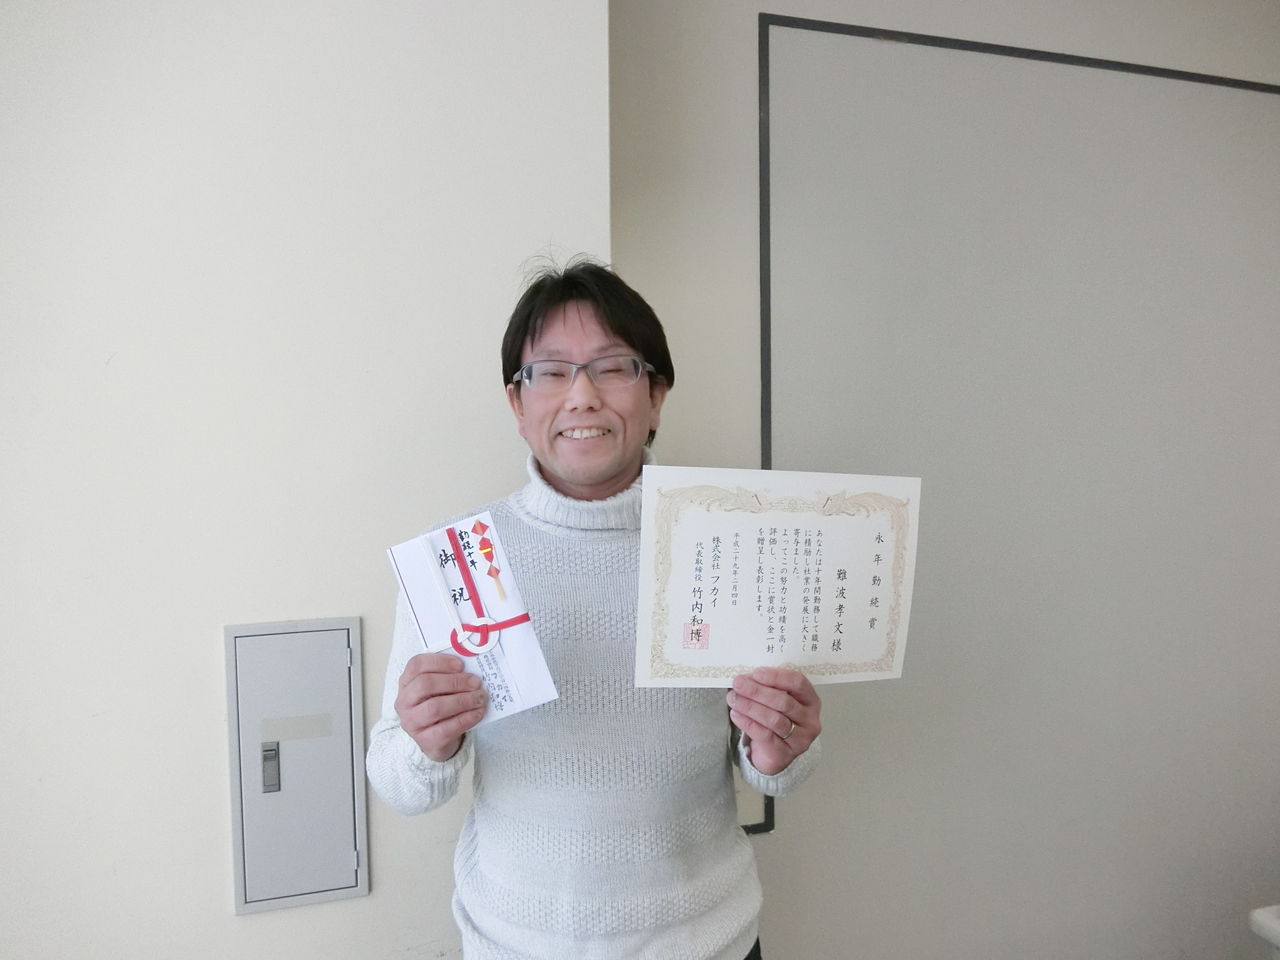 永年勤続賞
難波孝文様
あなたは十年間勤務して職務
に精励し社業の発展に大きく
寄与ました。
よってこの努力と功績を高く
評価し、ここに賞状と金一封
を贈呈し表彰します。
平成二十九年二月四日
株式会社 フカイ
代表取締役 竹内和博
勤続十年
御祝